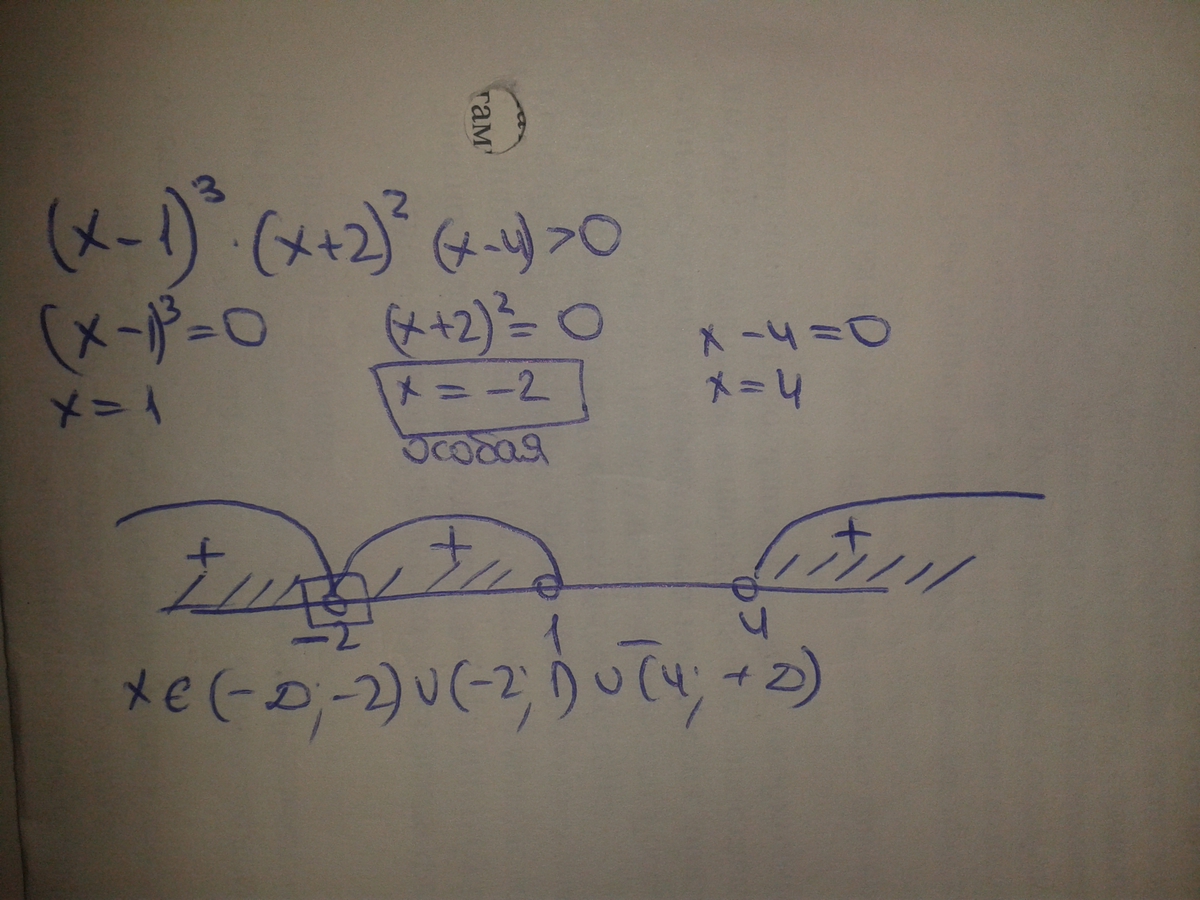 гам
(x-1)³·(x+2)² (x-4)>0
(x-1)³=0 (x+2)²=0 x-4=0
x=1 x=-2 x=4
особая
+ + +
-2 1 - 4
x∈(-∞;-2)∪(-2;1)∪(4;+∞)